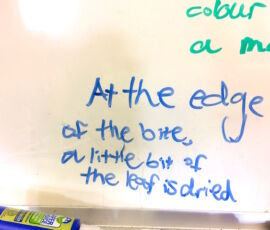 colour
a m
At the edge
of the bite,
a little bit of
the leaf is dried